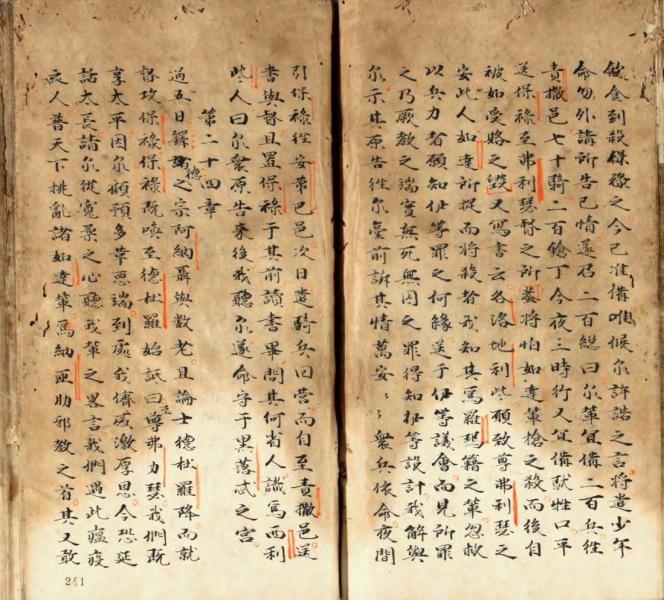 飲食到殺保祿之今已准備唯候尔許諾之言將遣少年
命勿外講所告已情遂召二百總曰尔輩宜備二百兵徃
責撒邑七十騎二百鎗丁今夜三時行又宜備獸牲口平
送保祿至弗利瑟督之所葢將怕如達輩搶之殺而後自
被如受賂之毀又寫書云各洛地利些頓致尊弗利瑟之
安此人如達所捉而將殺者我知其為羅瑪籍之輩忽救
以兵力者願知伊等罪之何緣送于伊等議會而見所罪
之乃厥教之端實無死無囚之罪得知伊等設計我解與
尔示其原告徃尔臺前訴其情萬安〻衆兵依命夜間
引保祿徃安第巴邑次日遣騎兵囬營而自至責撒邑送
書與督且置保祿于其前讀書畢問其何省人識為西利
些人曰尔衆原告来後我聽尔遂命守于黑落忒之宮
第二十四章
過五日鐸德之宗阿納聶與數老且論士德杜羅降而就
督攻保祿保祿既喚至德杜羅始訴曰至尊弗力瑟我們既
享太平因尔顧預多革悪端到處我儕感激厚恩今恐延
話太長請尔從寬柔之心聽我輩之畧言我們遇此瘟疫
人普天下挑亂諸如達輩為納匝肋邪教之首其又敢
241